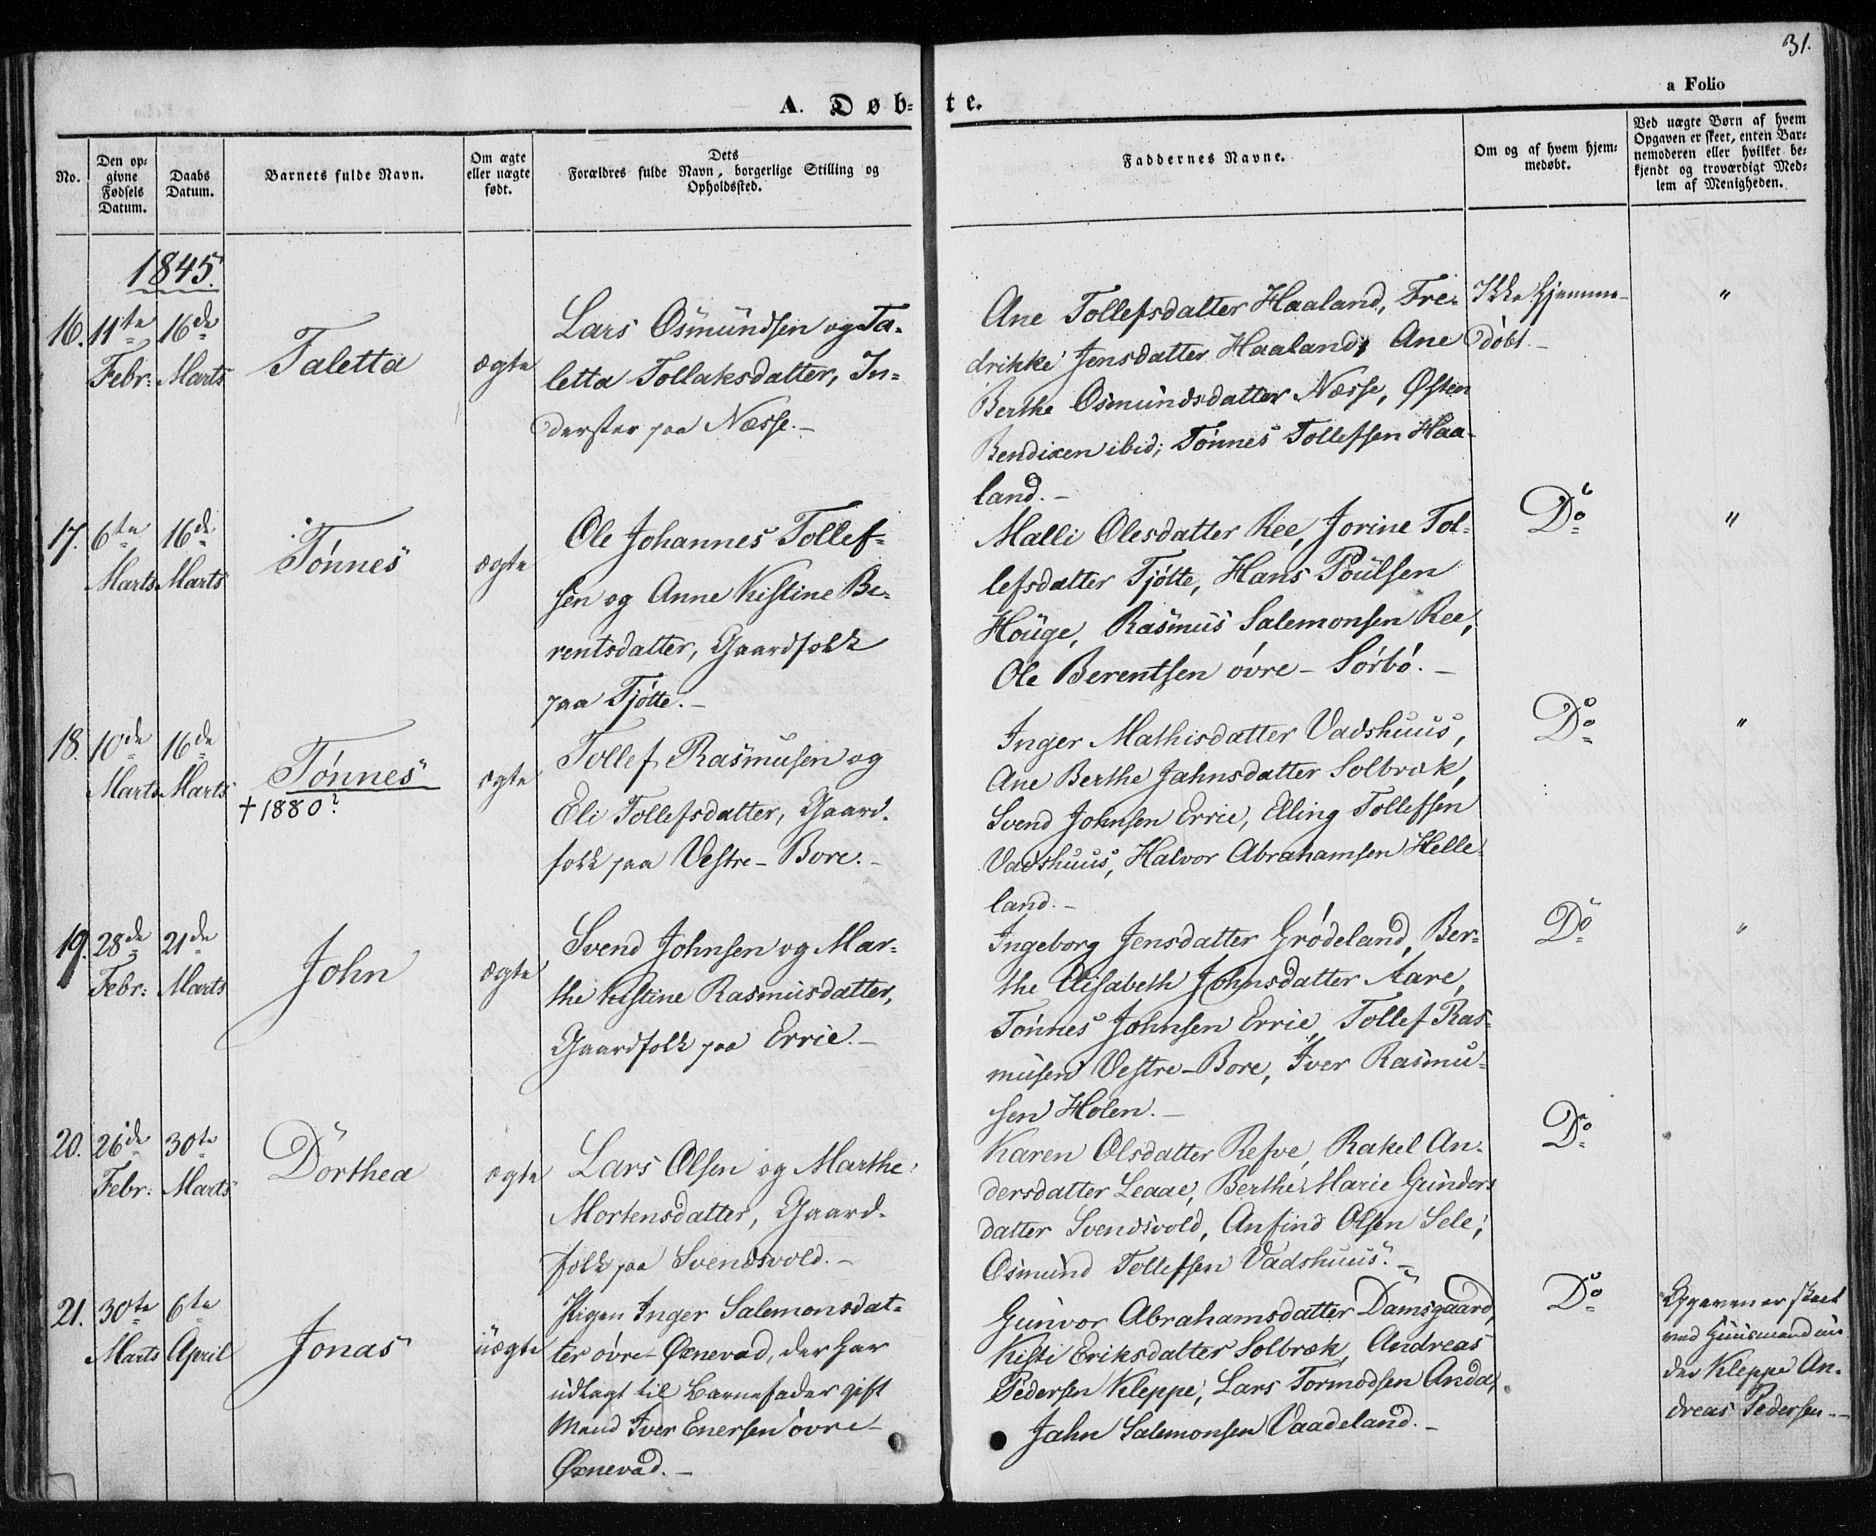 31.
A. Døbte.
a Folio
No.
Den op-
givne
Fødsels
Datum.
Daabs
Datum.
Barnets fulde Navn.
Om ægte
eller uægte
født.
Dets
Forældres fulde Navn, borgerlige Stilling og
Opholdssted.
Faddernes Navne.
Om og af hvem hjem-
medøbt.
Ved uægte Børn af hvem
Opgaven er skeet, enten Bar-
nemoderen eller hvilket be-
kjendt og troværdigt Med-
lem af Menigheden.
1845.
16.
11te
Febr:
16de
Marts
Taletta
ægte
Lars Osmundsen og Ta-
letta Tollaksdatter, In-
derster paa Nesse.-
Ane Tollefsdatter Haaland, Fre-
drikke Jensdatter Haaland, Ane
Berthe Osmundsdatter Nesse, Østen
Bendixen ibid; Tønnes Tollefsen Haa-
land.-
Ikke hjemme-
døbt.-
"
17.
6te
Marts
16de
Marts
Tønnes
ægte
Ole Johannes Tollef-
sen og Anne Kistine Be-
rentsdatter, Gaardfolk
paa Tjøtte.-
Malli Olesdatter Ree, Jorine Tol-
lefsdatter Tjøtte, Hans Poulsen
Houge, Rasmus Salemonsen Ree,
Ole Berentsen øvre-Sørbø.-
Do
"
18.
10de
Marts
16de
Marts
Tønnes
† 1880?
ægte
Tollef Rasmusen og
Eli Tollefsdatter, Gaard-
folk paa Vestre-Bore.-
Inger Mathisdatter Vadshuus,
Ane Berthe Jahnsdatter Solbrok,
Svend Johnsen Errie, Elling Tollefsen
Vadshuus, Halvor Abrahamsen Helle-
land.-
Do
"
19.
28de
Febr:
21de
Marts
John
ægte
Svend Johnsen og Mar-
the Kistine Rasmusdatter,
Gaardfolk paa Errie.-
Ingeborg Jensdatter Grødeland, Ber-
the Elisabeth Johnsdatter Aare,
Tønnes Johnsen Errie, Tollef Ras-
musen Vestre-Bore, Iver Rasmu-
sen Holen.-
Do
"
20.
26de
Febr:
30te
Marts
Dorthea
ægte
Lars Olsen og Marthe
Mortensdatter, Gaard-
folk paa Svendsvold.-
Karen Olsdatter Refve, Rakel An-
dersdatter Leaae, Berthe Marie Gunders
datter Svendsvold, Anfind Olsen Sele,
Osmund Tollefsen Vadshuus.-
Do
21.
30te
Marts
6te
April
Jonas
uægte
Pigen Inger Salemonsdat-
ter øvre-Øxnevad, der har
udlagt til Barnefader gift
Mand Iver Enersen øvre-
Øxnevad.-
Gunvor Abrahamsdatter Damsgaard,
Kisti Eriksdatter Solbrok, Andreas
Pedersen Kleppe, Lars Tormodsen Anda,
Jahn Salemonsen Vaadeland.-
Do
Opgaven er skeet
ved Huusmand un-
der Kleppe An-
dreas Pedersen.-